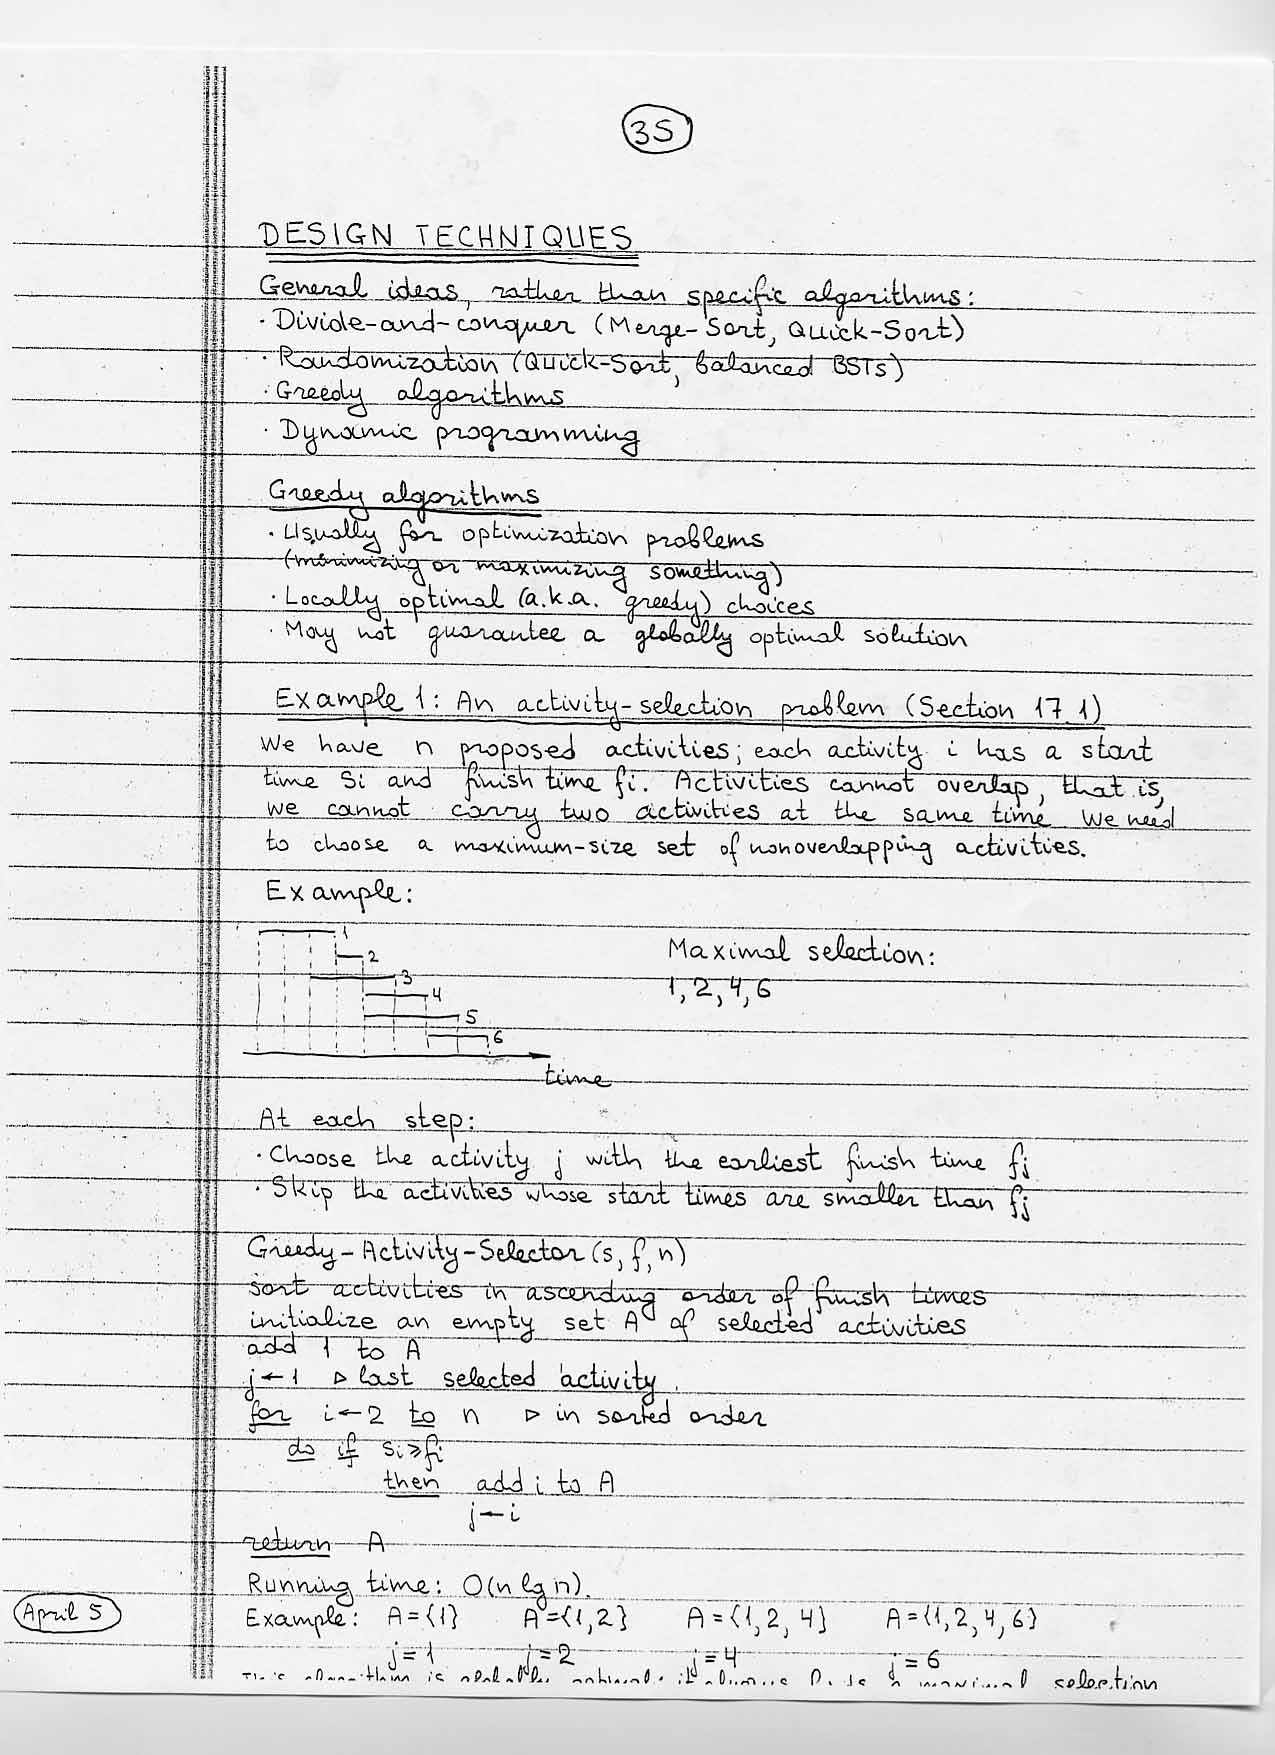 35
DESIGN TECHNIQUES
General ideas, rather than specific algorithms:
· Divide-and-conquer (Merge-Sort, Quick-Sort)
· Randomization (Quick-Sort, balanced BSTs)
· Greedy algorithms
· Dynamic programming
Greedy algorithms
· Usually for optimization problems
(minimizing or maximizing something)
· Locally optimal (a.k.a. greedy) choices
· May not guarantee a globally optimal solution
Example 1: An activity-selection problem (Section 17.1)
We have n proposed activities; each activity i has a start
time si and finish time fi. Activities cannot overlap, that is,
we cannot carry two activities at the same time. We need
to choose a maximum-size set of nonoverlapping activities.
Example:
1
2
3
4
5
6
time
Maximal selection:
1, 2, 4, 6
At each step:
· Choose the activity j with the earliest finish time fj
· Skip the activities whose start times are smaller than fj
Greedy-Activity-Selector (s, f, n)
sort activities in ascending order of finish times
initialize an empty set A of selected activities
add 1 to A
j ← 1 ▷ last selected activity
for i ← 2 to n ▷ in sorted order
do if si ≥ fj
then add i to A
j ← i
return A
Running time: O(n lg n).
April 5
Example: A = {1} A = {1, 2} A = {1, 2, 4} A = {1, 2, 4, 6}
j = 1 j = 2 j = 4 j = 6
This algorithm is globally optimal: it always finds a maximal selection